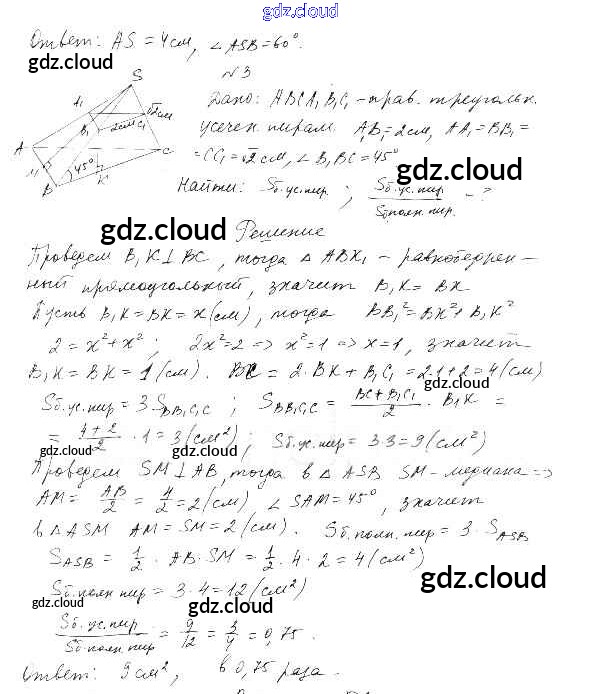 gdz.cloud
Ответ: AS = 4 см, ∠ASB = 60°.
gdz.cloud
№3
S
A₁ √2 см
B₁ 2 см C₁
A C
45°
M B K
Дано: ABCA₁B₁C₁ - прав. треугольн.
усечен. пирам. A₁B₁ = 2 см, AA₁ = BB₁ =
= CC₁ = √2 см, ∠B₁BC = 45°
gdz.cloud
Найти: Sб.ус.пир ; Sб.ус.пир / Sб полн.пир. - ?
gdz.cloud Решение
Проведем B₁K ⊥ BC, тогда △ ABK₁ - равнобедрен-
ный прямоугольный, значит B₁K = BK
Пусть B₁K = BK = x (см), тогда BB₁² = BK² + B₁K²
2 = x² + x² ; 2x² = 2 => x² = 1 => x = 1, значит
B₁K = BK = 1 (см). BC = 2·BK + B₁C₁ = 2·1 + 2 = 4 (см)
Sб.ус.пир = 3·S BB₁C₁C ; S BB₁C₁C = (BC + B₁C₁)/2 · B₁K =
= (4+2)/2 · 1 = 3 (см²) ; Sб.ус.пир = 3·3 = 9 (см²)
Проведем SM ⊥ AB, тогда в △ ASB SM - медиана =>
AM = AB/2 = 4/2 = 2 (см) ∠ SAM = 45°, значит
gdz.cloud gdz.cloud
в △ ASM AM = SM = 2 (см). Sб.полн.пир = 3·S ASB
S ASB = 1/2 · AB · SM = 1/2 · 4 · 2 = 4 (см²)
gdz.cloud
Sб.полн пир = 3·4 = 12 (см²)
gdz.cloud gdz.cloud
Sб.ус.пир / Sб полн.пир = 9/12 = 3/4 = 0,75.
gdz.cloud
Ответ: 9 см², в 0,75 раза.
gdz.cloud